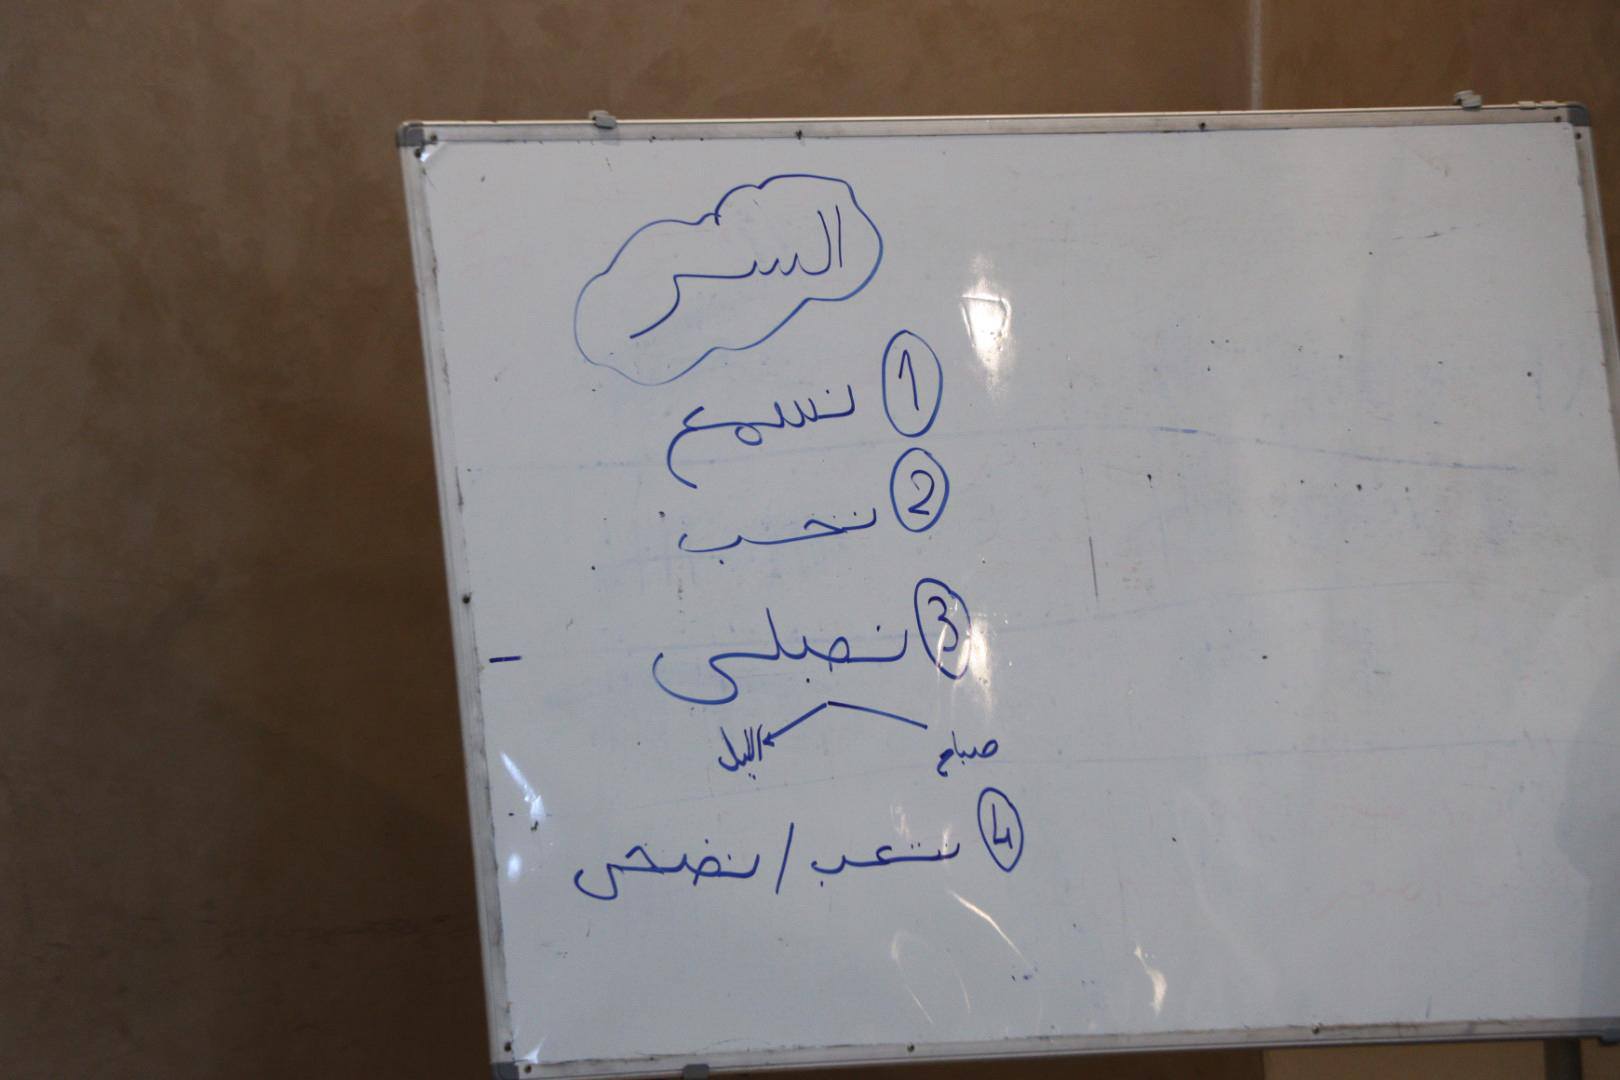 السر
1 نسمع
2 نحب
3 نصلى
صباح الليل
4 نتعب / نضحى